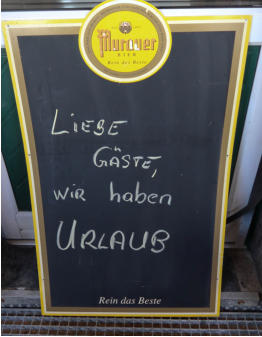 Murauer
BIER
Rein das Beste
LIEBE
GÄSTE,
wir haben
URLAUB
Rein das Beste